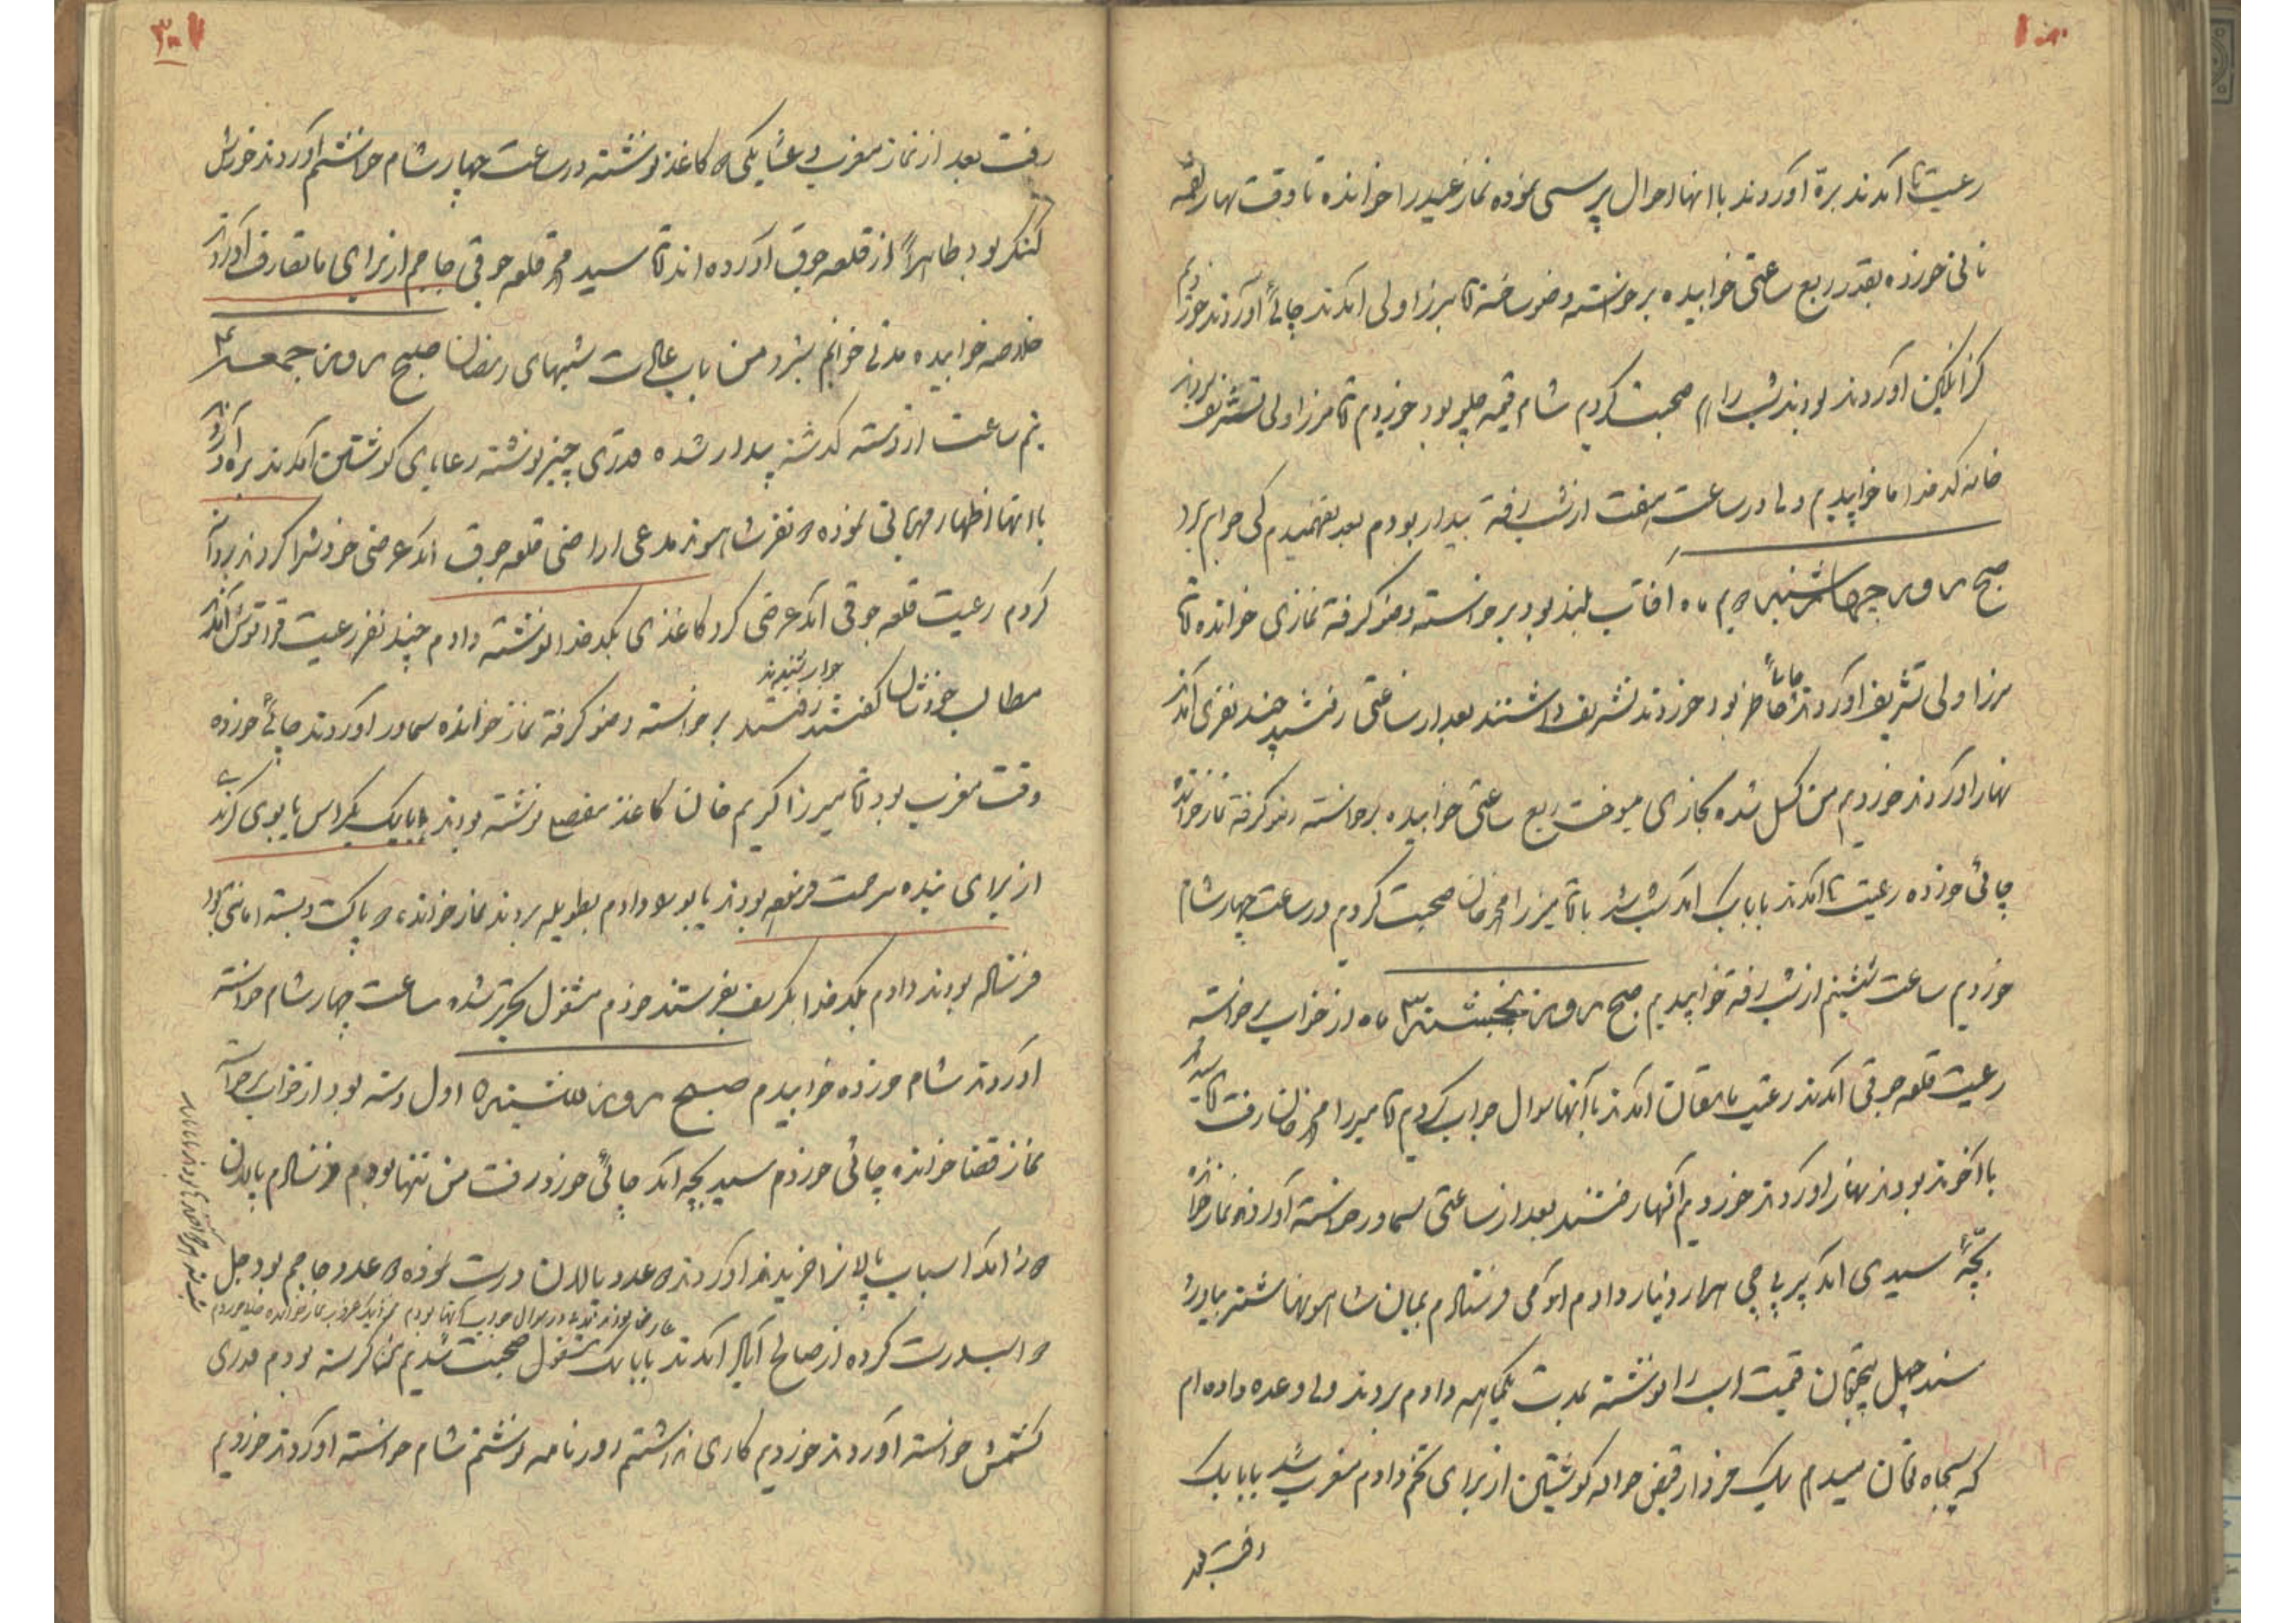 رعیت‌ها آمدند بره آوردند با انها احوال پرسی نموده نماز عید را خوانده تا وقت نهار لقمه
نانی خورده بقدر ربع ساعتی خوابیده برخواسته وضو ساخته اقا میرزا ولی امدند چائی آوردند خوردیم
گزانگبین آوردند بودند شب را هم صحبت کردیم شام قیمه چلو بود خوردیم اقا میرزا ولی تشریف بردند
خانه کدخدا ما خوابیدیم ولی در ساعت هفت از شب رفته بیدار بودم بعد نفهمیدم کی خوابم برد
صبح روز چهارشنبه ۲ یم ماه آفتاب بلند بود برخواسته وضو گرفته نمازی خوانده اقا
میرزا ولی تشریف اوردند چائی حاضر بود خوردند تشریف داشتند بعد از ساعتی رفتند چند نفری آمدند
نهار اوردند خوردیم من کسل شده بخاری میسوخت ربع ساعتی خوابیده برخواسته وضو گرفته نماز خوانده
چائی خورده رعیت‌ها آمدند بابا بک امد شب شد با اقا میرزا محمد خان صحبت کردیم در ساعت چهار شام
خوردیم ساعت ششیم از شب رفته خوابیدیم صبح روز پنجشنبه ۳ ماه از خواب برخواسته
رعیت قلعه جوقی امدند رعیت آمدند با آنها سوال جواب کردیم اقا میرزا محمد خان رفت اقا سید محمد
با آخوند بودند نهار اوردند خوردیم آنها رفتند بعد از ساعتی سماور خواسته آوردند نماز خوانده
بچه سیدی امد هزار دینار دادم ادمی فرستادم بمیان شاهسونها شتر بیاورد
سند چهل پنج تومان قیمت اسب را نوشته بمدت یکماهه دادم بردند ولی وعده داده ام
که پنجاه تومان میدهم یک خروار قبض حواله کوشتین از برای تخم دادم مغرب شد بابا بک
رفت بعد
رفت بعد از نماز مغرب و عشا یکی دو کاغذ نوشته در ساعت چهار شام خواستم اوردند خورش
کنگر بود ظاهراً از قلعه جوق آورده اند اقا سید محمد قلعه جوقی جاجم از برای ما تعارف آورد
خلاصه خوابیده مدتی خوابم نبرد من باب عادت شبهای رمضان صبح روز جمعه ۴
نیم ساعت از دسته گذشته بیدار شده قدری چیز نوشته رعایای کوشتین آمدند بره آوردند
با انها اظهار مهربانی نموده دو نفر شاهسوند مدعی اراضی قلعه جوق امد عرضی خودش را کردند روانه
کردم رعیت قلعه جوقی امد عرضی کرد کاغذی بکدخدا نوشته دادم چند نفر رعیت قراقوش آمدند
مطالب خودشان گفتند جواب شنیدند رفتند برخواسته وضو گرفته نماز خوانده سماور اوردند چائی خورده
وقت مغرب بود اقا میرزا کریم خان کاغذ مفصل نوشته بودند بابا بک یکراس یابوی کرندی
از برای بنده مرحمت فرموده بودند یابو را دادم بطویله بردند نماز خوانده دو پاکت دسته امانتی بود
فرستاده بودند دادم بکدخدا بگرفس بفرستند خودم مشغول تحریر شده ساعت چهار شام خواسته
اوردند شام خورده خوابیدم صبح روز شنبه ۵ اول دسته بود از خواب برخواسته
نماز قضا خوانده چائی خوردم سید بچه امد چائی خورد رفت من تنها بودم فرستادم پالدن
دوز امد اسباب پالان را خریدند اوردند دو عدد پالدن درست نموده دو عدد جاجم بود جل
دو اسب درست کرده از صالح آباد آمدند بابا بک مشغول صحبت شدیم من گرسنه بودم قدری
کشمش خواسته آوردند خوردیم کاری نداشتم روزنامه نوشتم شام خواسته اوردند خوردیم